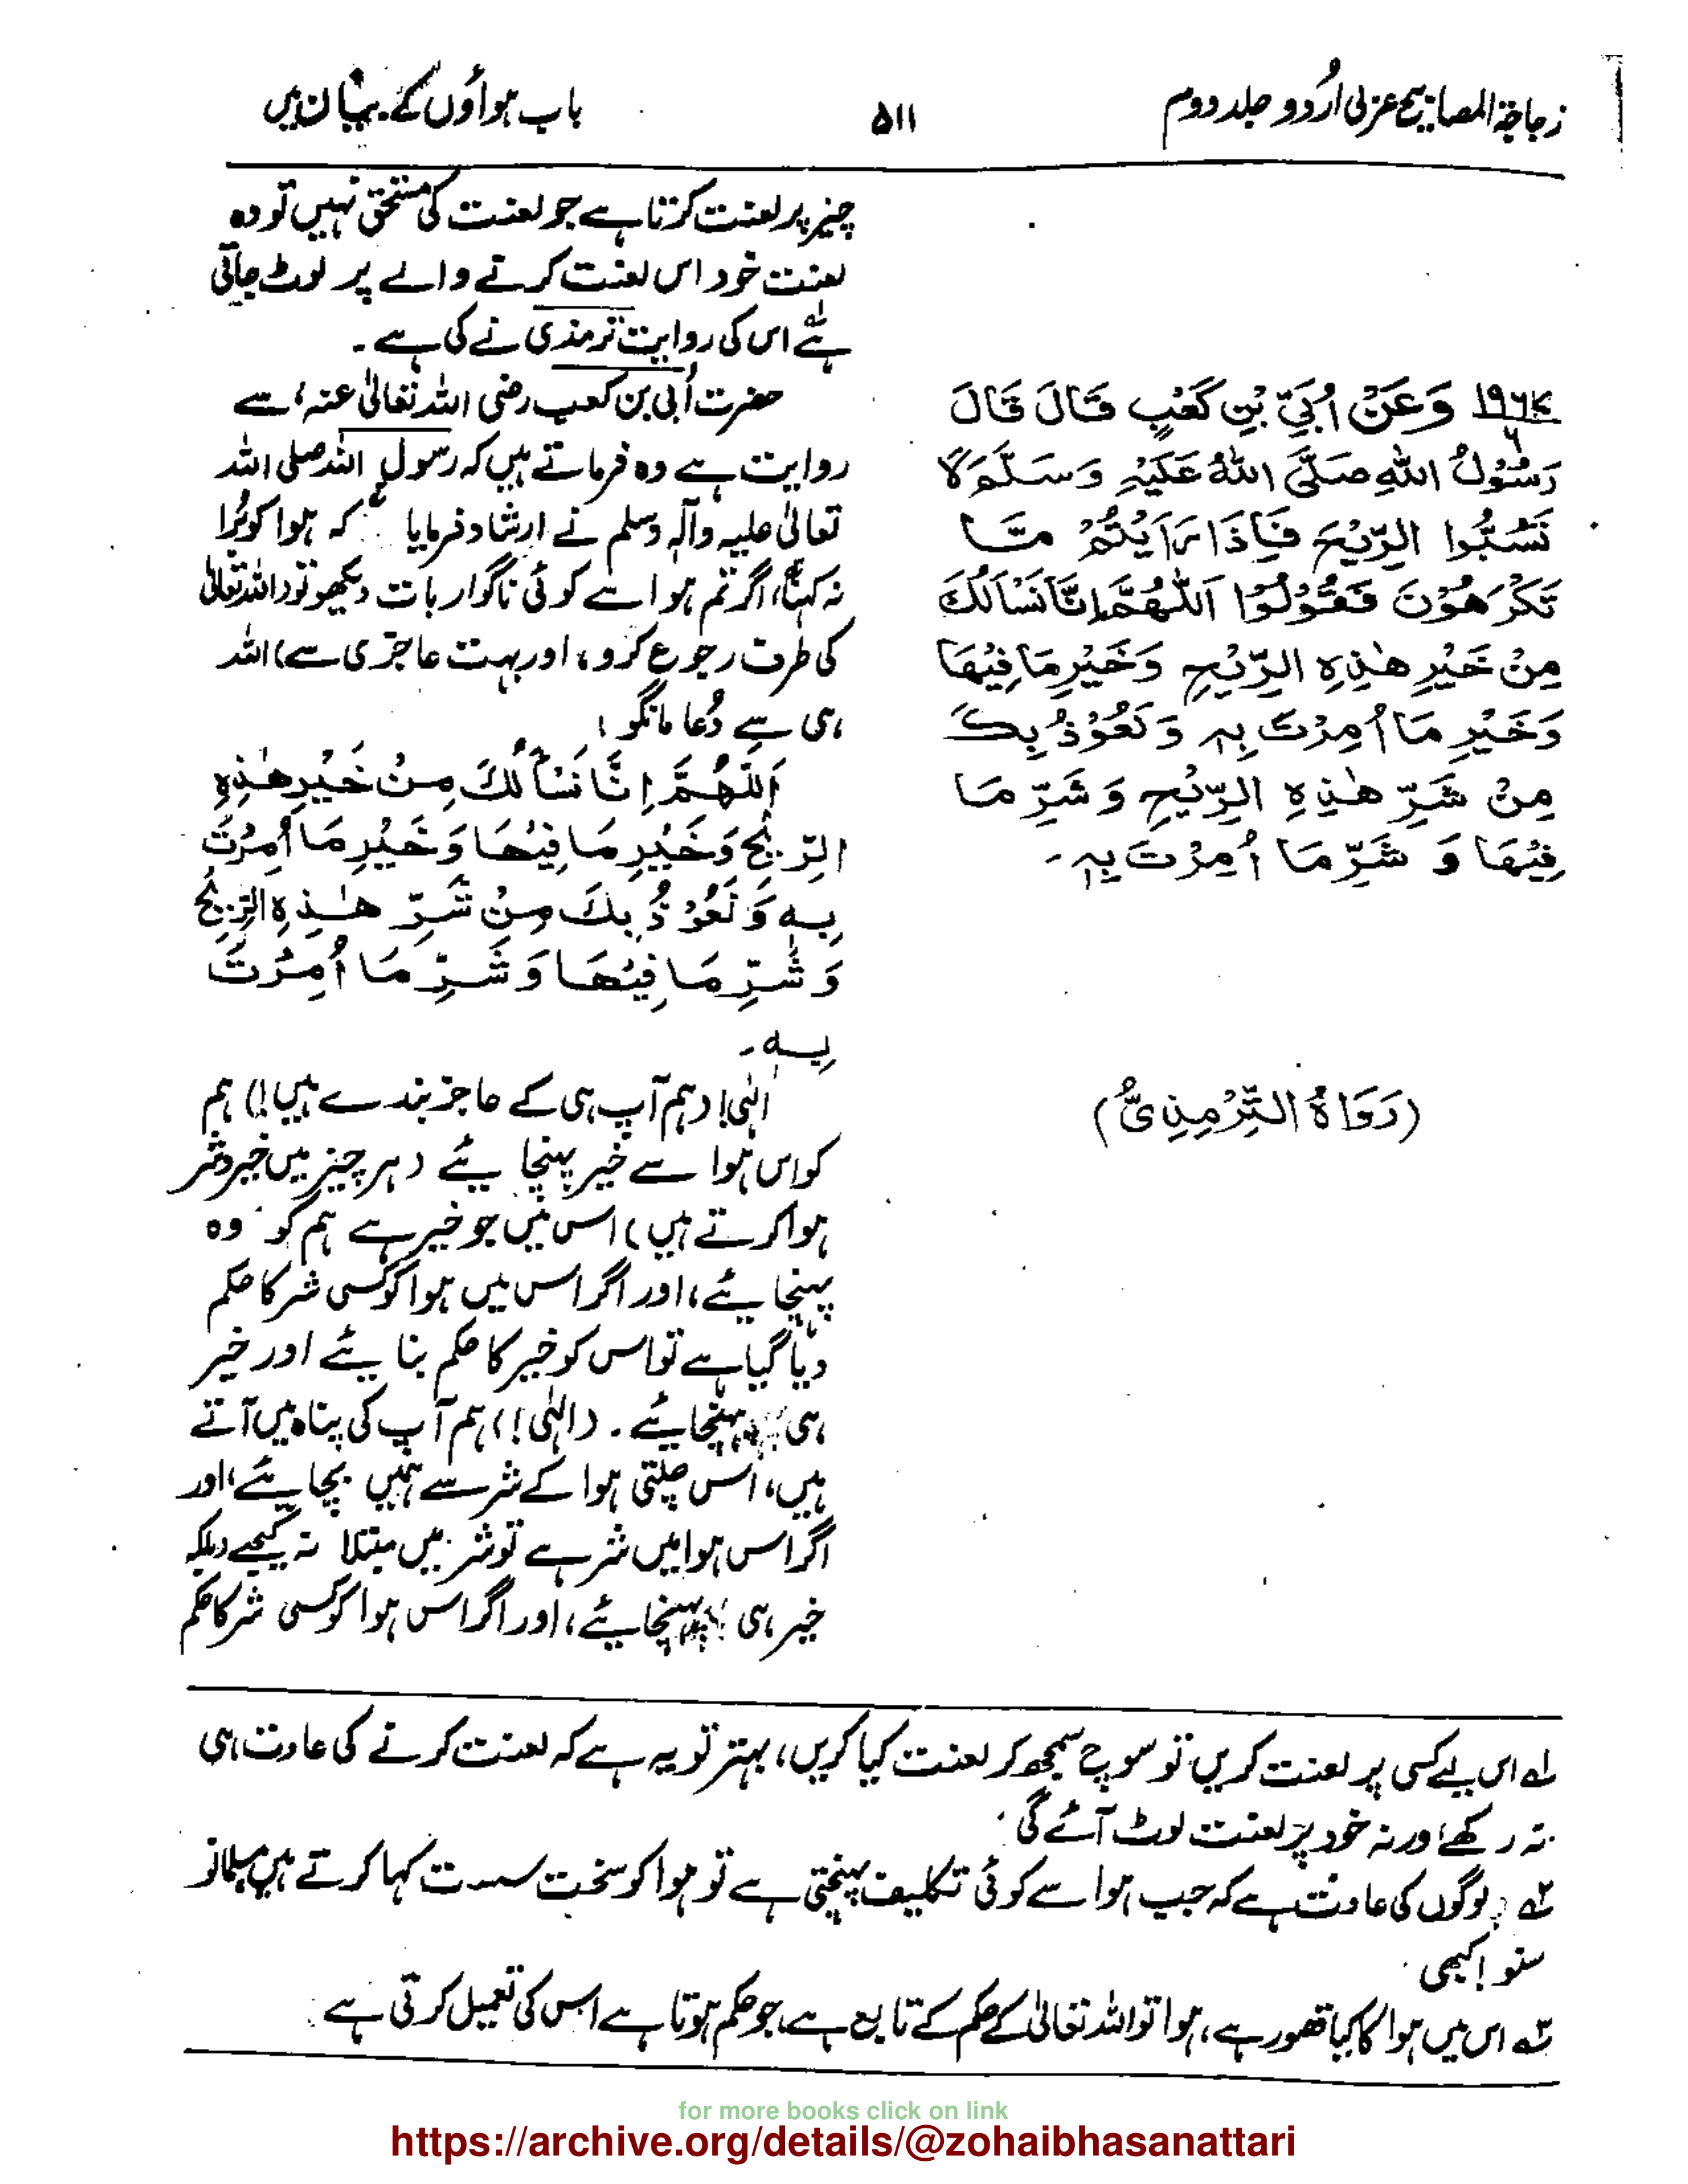 زجاجۃ المصابیح عربی اُردو جلد دوم
۵۱۱
باب ہواؤں کے بیان میں
چیز پر لعنت کرتا ہے جو لعنت کی مستحق نہیں تو وہ
لعنت خود اس لعنت کرنے والے پر لوٹ جاتی
ہے اس کی روایت ترمذی نے کی ہے۔
وَعَنْ اُبَيِّ بْنِ كَعْبٍ قَالَ قَالَ
رَسُوْلُ اللهِ صَلَّى اللهُ عَلَيْهِ وَسَلَّمَ لَا
تَسُبُّوا الرِّيْحَ فَإِذَا رَاَيْتُمْ مَّا
تَكْرَهُوْنَ فَقُوْلُوْا اَللّٰهُمَّ اِنَّا نَسْاَلُكَ
مِنْ خَيْرِ هٰذِهِ الرِّيْحِ وَخَيْرِ مَا فِيْهَا
وَخَيْرِ مَا اُمِرْتَ بِهٖ وَنَعُوْذُ بِكَ
مِنْ شَرِّ هٰذِهِ الرِّيْحِ وَشَرِّ مَا
فِيْهَا وَ شَرِّ مَا اُمِرْتَ بِهٖ۔
(رَوَاهُ التِّرْمِذِيُّ)
حضرت اُبی بن کعب رضی اللہ تعالیٰ عنہ، سے
روایت ہے وہ فرماتے ہیں کہ رسول اللہ صلی اللہ
تعالیٰ علیہ وآلہٖ وسلم نے ارشاد فرمایا کہ ہوا کو بُرا
نہ کہنا، اگر تم ہوا سے کوئی ناگوار بات دیکھو تو (اللہ تعالیٰ
کی طرف رجوع کرو، اور بہت عاجزی سے) اللہ
ہی سے دُعا مانگو!
اَللّٰهُمَّ اِنَّا نَسْأَلُكَ مِنْ خَيْرِ هٰذِهِ
الرِّيْحِ وَخَيْرِ مَا فِيْهَا وَخَيْرِ مَا اُمِرْتَ
بِهِ وَنَعُوْذُ بِكَ مِنْ شَرِّ هٰذِهِ الرِّيْحِ
وَشَرِّ مَا فِيْهَا وَشَرِّ مَا اُمِرْتَ
بِهِ۔
الٰہی! (ہم آپ ہی کے عاجز بندے ہیں!) ہم
کو اس ہوا سے خیر پہنچائیے (ہر چیز میں خیر و شر
ہوا کرتے ہیں) اس میں جو خیر ہے ہم کو وہ
پہنچائیے، اور اگر اس میں ہوا کو کسی شر کا حکم
دیا گیا ہے تو اس کو خیر کا حکم بنائیے اور خیر
ہی پہنچائیے۔ (الٰہی!) ہم آپ کی پناہ میں آتے
ہیں، اس چلتی ہوا کے شر سے ہمیں بچائیے، اور
اگر اس ہوا میں شر ہے تو شر میں مبتلا نہ کیجیے (بلکہ
خیر ہی پہنچائیے، اور اگر اس ہوا کو کسی شر کا حکم
لہ اس لیے کسی پر لعنت کریں تو سوچ سمجھ کر لعنت کیا کریں، بہتر تو یہ ہے کہ لعنت کرنے کی عادت ہی
نہ رکھے ورنہ خود پر لعنت لوٹ آئے گی
۲ لوگوں کی عادت ہے کہ جب ہوا سے کوئی تکلیف پہنچتی ہے تو ہوا کو سخت سست کہا کرتے ہیں مسلمانو
سنو! کبھی
۳ اس میں ہوا کا کیا قصور ہے، ہوا تو اللہ تعالیٰ کے حکم کے تابع ہے، جو حکم ہوتا ہے اس کی تعمیل کرتی ہے
for more books click on link
https://archive.org/details/@zohaibhasanattari